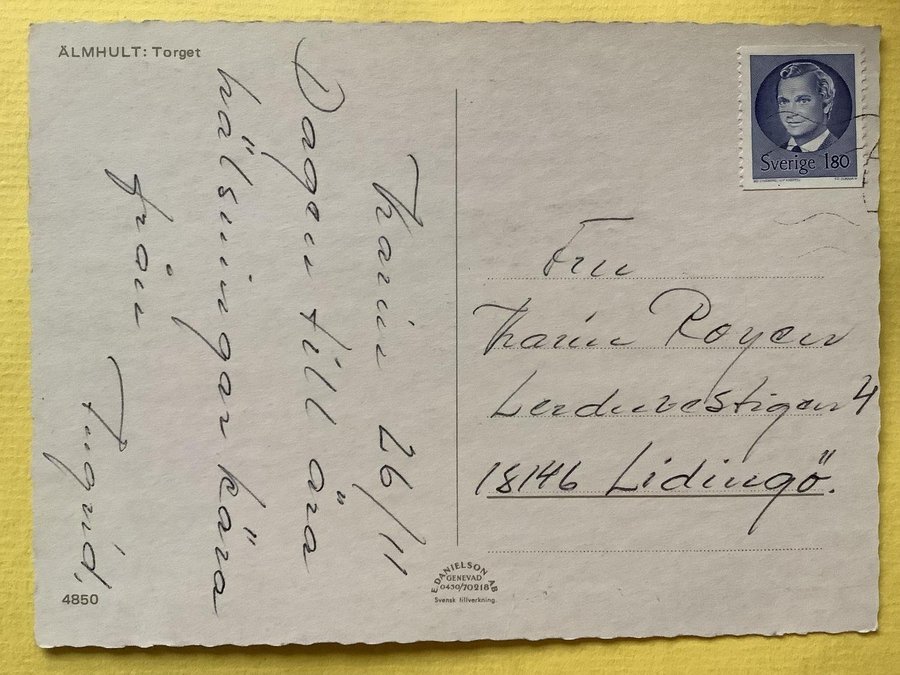 ÄLMHULT: Torget
Karin 26/11
Dagen till ära
hälsningar kära
från Ingrid.
Sverige 180
Fru
Karin Royen
Lerduvestigen 4
18146 Lidingö.
E. DANIELSON AB
GENEVAD
0430/70218
Svensk tillverkning.
4850